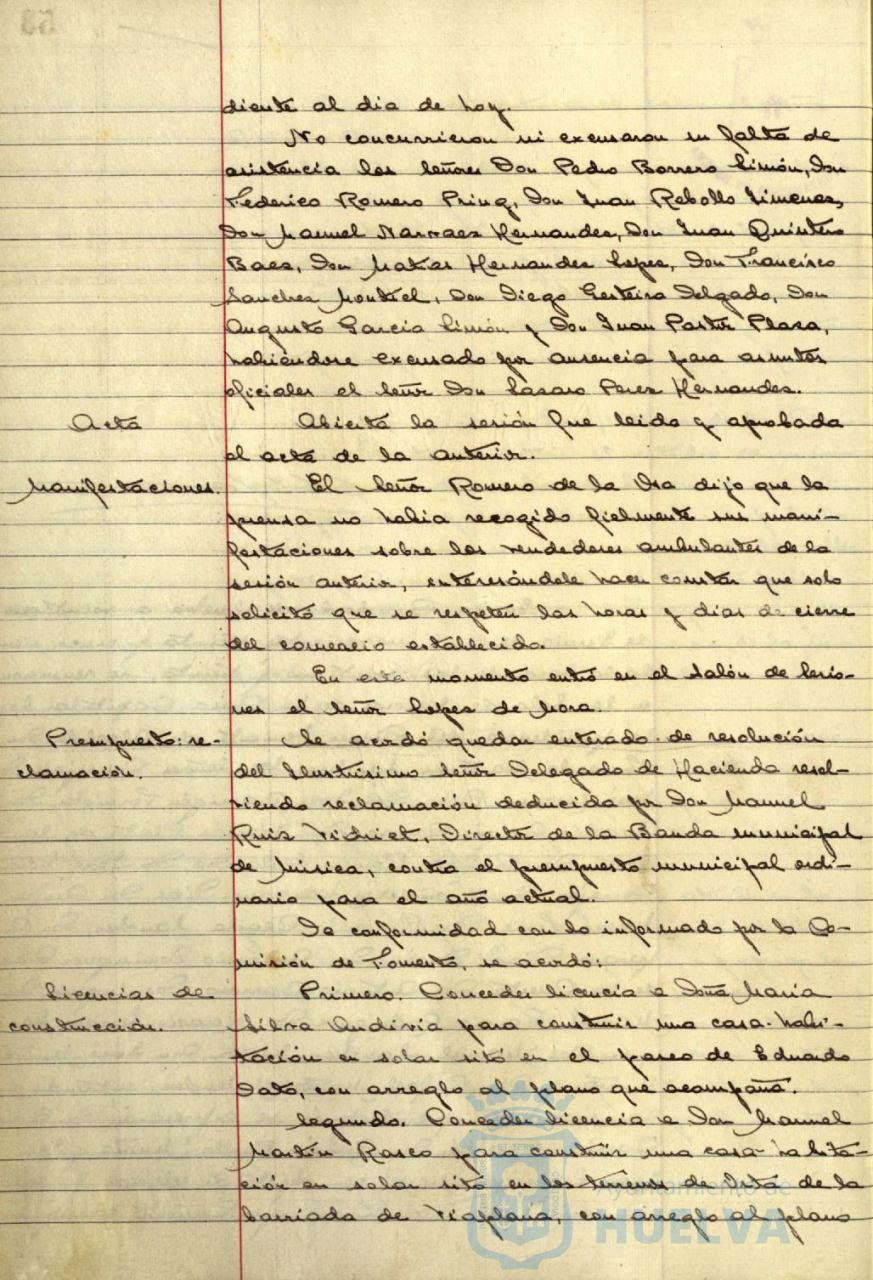 53
diente al dia de hoy.
No concurrieron ni excusaron su falta de
asistencia los señores Don Pedro Borrero Limón, Don
Federico Romero Pring, Don Juan Rebollo Jimenez,
Don Manuel Narvaez Hernandez, Don Juan Quintero
Baez, Don Matias Hernandez Lopez, Don Francisco
Sanchez Montiel, Don Diego Delgado, Don
Augusto García Limón y Don Juan Pastor Plaza,
habiéndose excusado por ausencia para asuntos
oficiales el señor Don Lazaro Perez Hernandez.
Acta
Abierta la sesión fue leido y aprobada
el acta de la anterior.
Manifestaciones.
El señor Romero de la Osa dijo que la
prensa no habia recogido fielmente sus mani-
festaciones sobre los vendedores ambulantes de la
sesión anterior, interesándole hacer constar que solo
solicitó que se respeten las horas y dias de cierre
del comercio establecido.
En este momento entró en el Salón de Sesio-
nes el señor Lopez de Mora.
Presupuesto: re-
clamación.
Se acordó quedar enterado de resolución
del Ilustrisimo Señor Delegado de Hacienda resol-
viendo reclamación deducida por Don Manuel
Ruiz Vidriet, Director de la Banda municipal
de Música, contra el presupuesto municipal ordi-
nario para el año actual.
De conformidad con lo informado por la Co-
misión de Fomento, se acordó:
Licencias de
construcción.
Primero. Conceder licencia a Doña Maria
Silva Andivia para construir una casa-habi-
tación en solar sito en el paseo de Eduardo
Dato, con arreglo al plano que acompaña.
Segundo. Conceder licencia a Don Manuel
Martin Rasco para construir una casa-habita-
ción en solar sito en los terrenos de Isla de la
barriada de Viaplana, con arreglo al plano
Ayuntamiento de
HUELVA